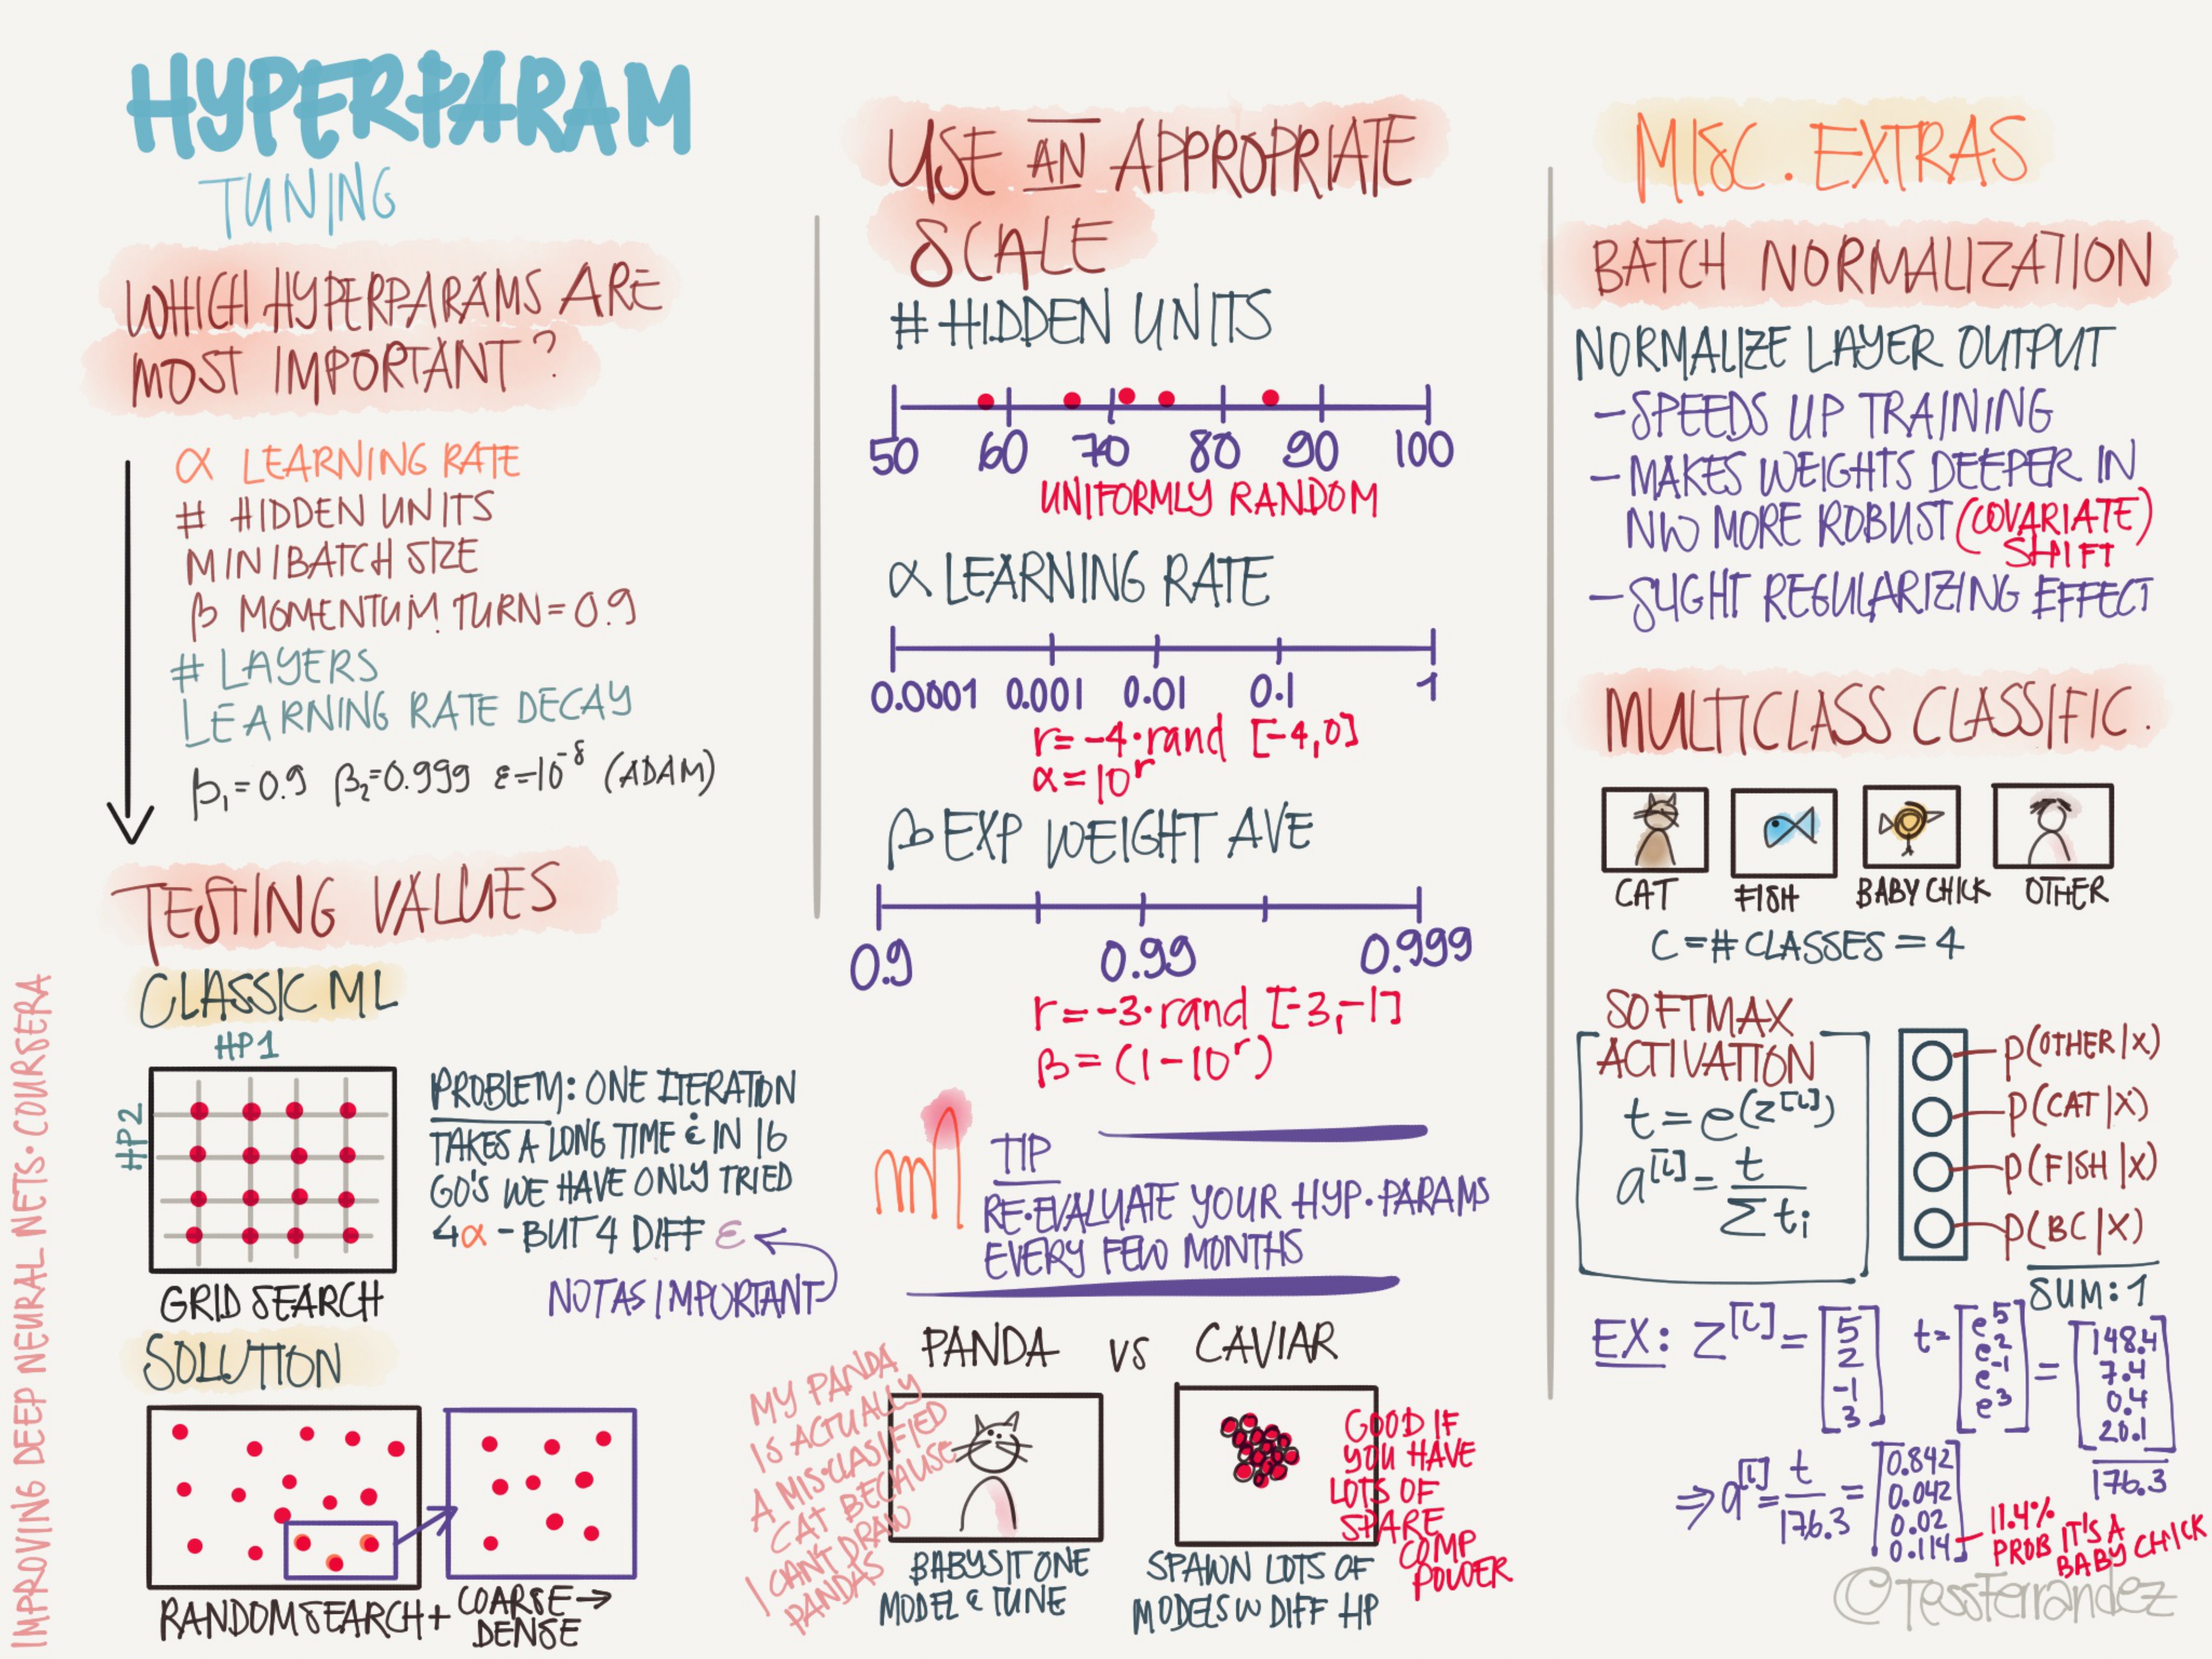 HYPERPARAM
TUNING
WHICH HYPERPARAMS ARE
MOST IMPORTANT?
α LEARNING RATE
# HIDDEN UNITS
MINIBATCH SIZE
β MOMENTUM TURN = 0.9
# LAYERS
LEARNING RATE DECAY
β₁=0.9 β₂=0.999 ε=10⁻⁸ (ADAM)
TESTING VALUES
CLASSIC ML
HP1
HP2
GRID SEARCH
PROBLEM: ONE ITERATION
TAKES A LONG TIME & IN 16
GO'S WE HAVE ONLY TRIED
4α - BUT 4 DIFF ε
NOT AS IMPORTANT
SOLUTION
RANDOM SEARCH + COARSE →
DENSE
IMPROVING DEEP NEURAL NETS · COURSERA
USE AN APPROPRIATE
SCALE
# HIDDEN UNITS
50 60 70 80 90 100
UNIFORMLY RANDOM
α LEARNING RATE
0.0001 0.001 0.01 0.1 1
r = -4·rand [-4,0]
α = 10^r
β EXP WEIGHT AVE
0.9 0.99 0.999
r = -3·rand [-3,-1]
β = (1-10^r)
TIP
RE·EVALUATE YOUR HYP·PARAMS
EVERY FEW MONTHS
PANDA VS CAVIAR
MY PANDA
IS ACTUALLY
A MIS·CLASIFIED
CAT BECAUSE
I CAN'T DRAW
PANDAS
BABYSIT ONE
MODEL & TUNE
GOOD IF
YOU HAVE
LOTS OF
SPARE
COMP
POWER
SPAWN LOTS OF
MODELS W DIFF HP
MISC. EXTRAS
BATCH NORMALIZATION
NORMALIZE LAYER OUTPUT
- SPEEDS UP TRAINING
- MAKES WEIGHTS DEEPER IN
NW MORE ROBUST (COVARIATE)
SHIFT
- SLIGHT REGULARIZING EFFECT
MULTICLASS CLASSIFIC.
CAT FISH BABY CHICK OTHER
C = # CLASSES = 4
SOFTMAX
ACTIVATION
t = e^(z^[L])
a^[L] = t / Σ tᵢ
P(OTHER|X)
P(CAT|X)
P(FISH|X)
P(BC|X)
SUM: 1
EX: Z^[L] = [5 2 -1 3] t = [e^5 e^2 e^-1 e^3] = [148.4 7.4 0.4 20.1]
176.3
⇒ a^[L] = t / 176.3 = [0.842 0.042 0.02 0.114]
11.4%
PROB IT'S A
BABY CHICK
©TessFerrandez